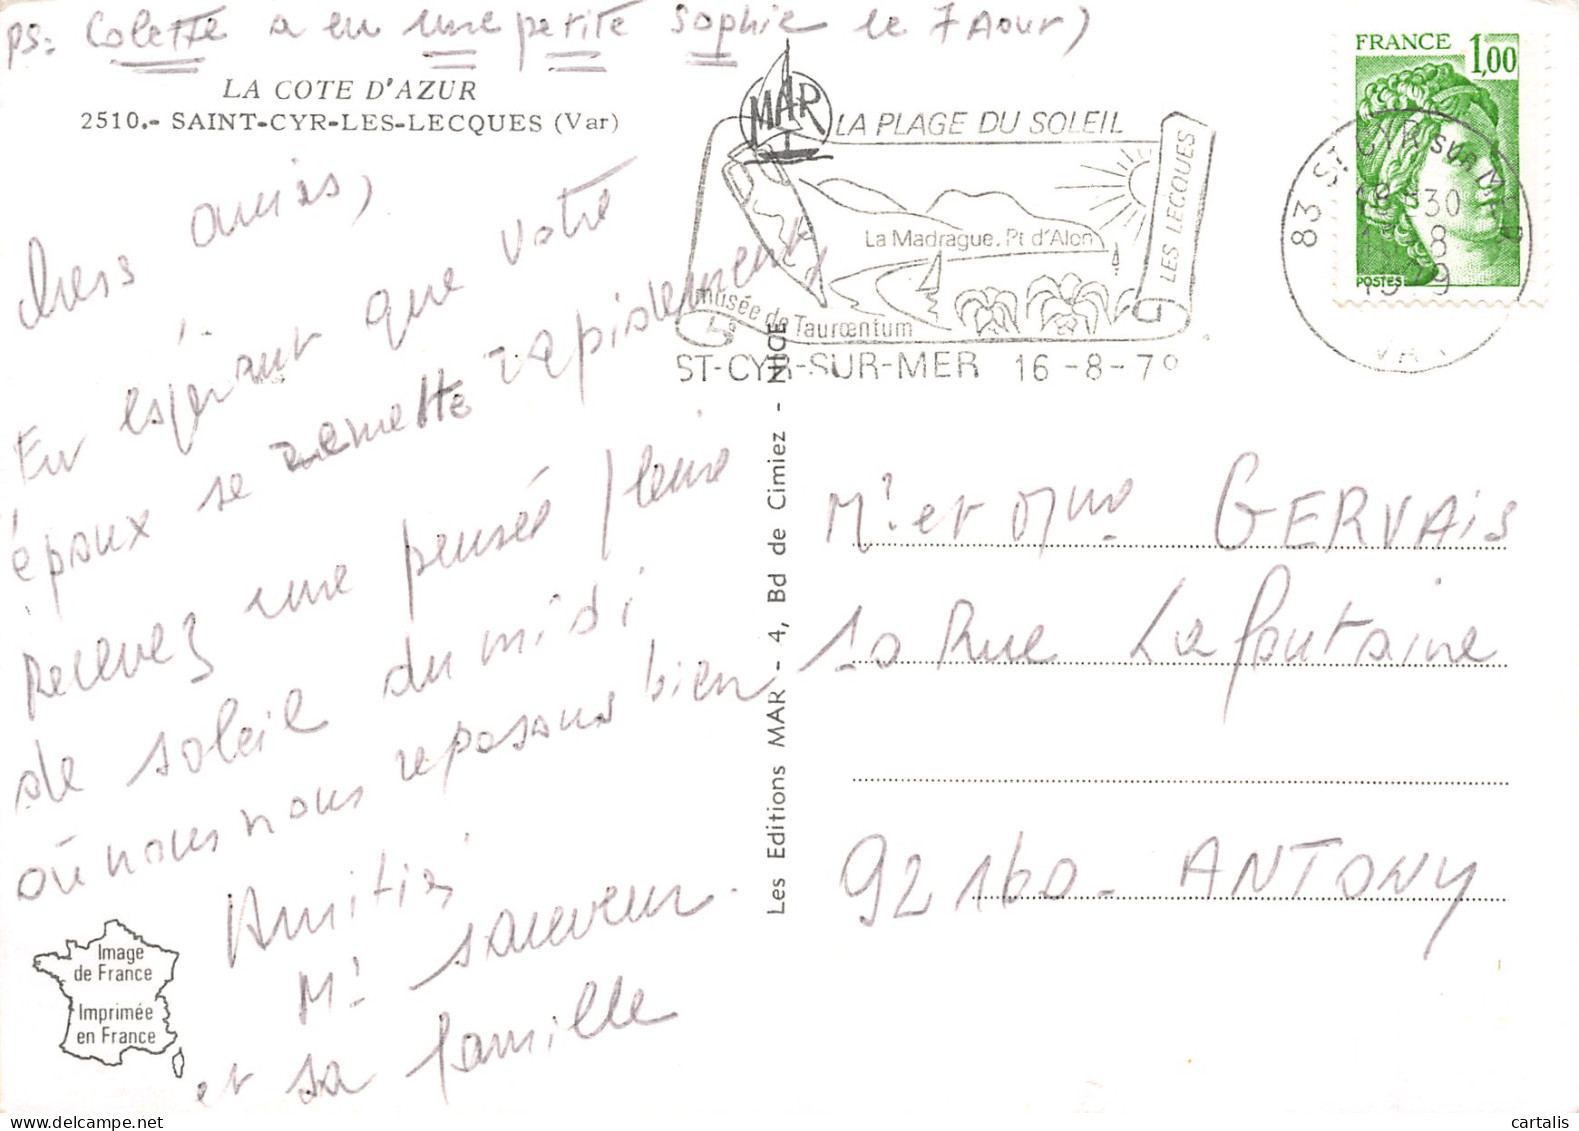 ps: Colette a eu une petite Sophie le 7 Aout)
LA COTE D'AZUR
2510.- SAINT-CYR-LES-LECQUES (Var)
chers amis,
En espérant que votre
époux se remette rapidement,
Recevez une pensée pleine
de soleil du midi
où nous nous reposons bien.
Amitiés
Mr Sauveur
et sa famille
Image
de France
Imprimée
en France
Les Editions MAR - 4, Bd de Cimiez - NICE
MAR
LA PLAGE DU SOLEIL
LES LECQUES
La Madrague. Pt d'Alon
musée de Tauroentum
ST-CYR-SUR-MER 16-8-79
FRANCE 1,00
POSTES
83 ST CYR SUR MER
VAR
Mr et Mme GERVAIS
10 Rue La fontaine
92160 - ANTONY
cartalis